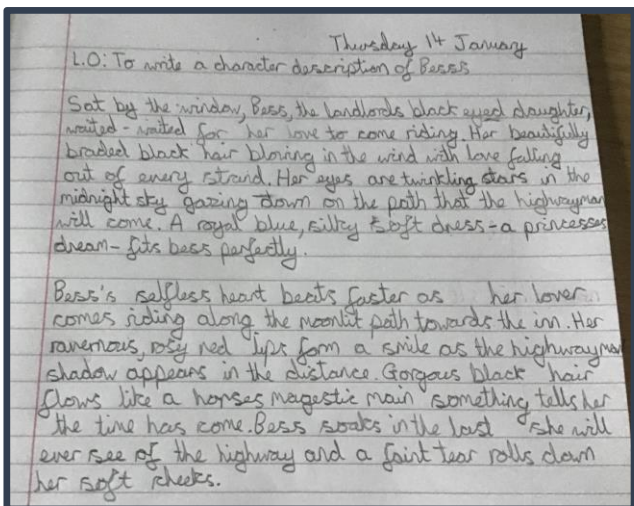 Thursday 14 January
L.O: To write a character description of Bess's
Sat by the window, Bess, the landlords black eyed daughter,
waited - waited for her love to come riding. Her beautifully
braded black hair blowing in the wind with love falling
out of every strand. Her eyes are twinkling stars in the
midnight sky gazing down on the path that the highwayman
will come. A royal blue, silky soft dress - a princesses
dream - fits bess perfectly.
Bess's selfless heart beats faster as her lover
comes riding along the moonlit path towards the inn. Her
ravernous, rosy red lips form a smile as the highwayman
shadow appears in the distance. Gorgous black hair
flows like a horses magestic main something tells her
the time has come. Bess soaks in the last she will
ever see of the highway and a faint tear rolls down
her soft cheeks.